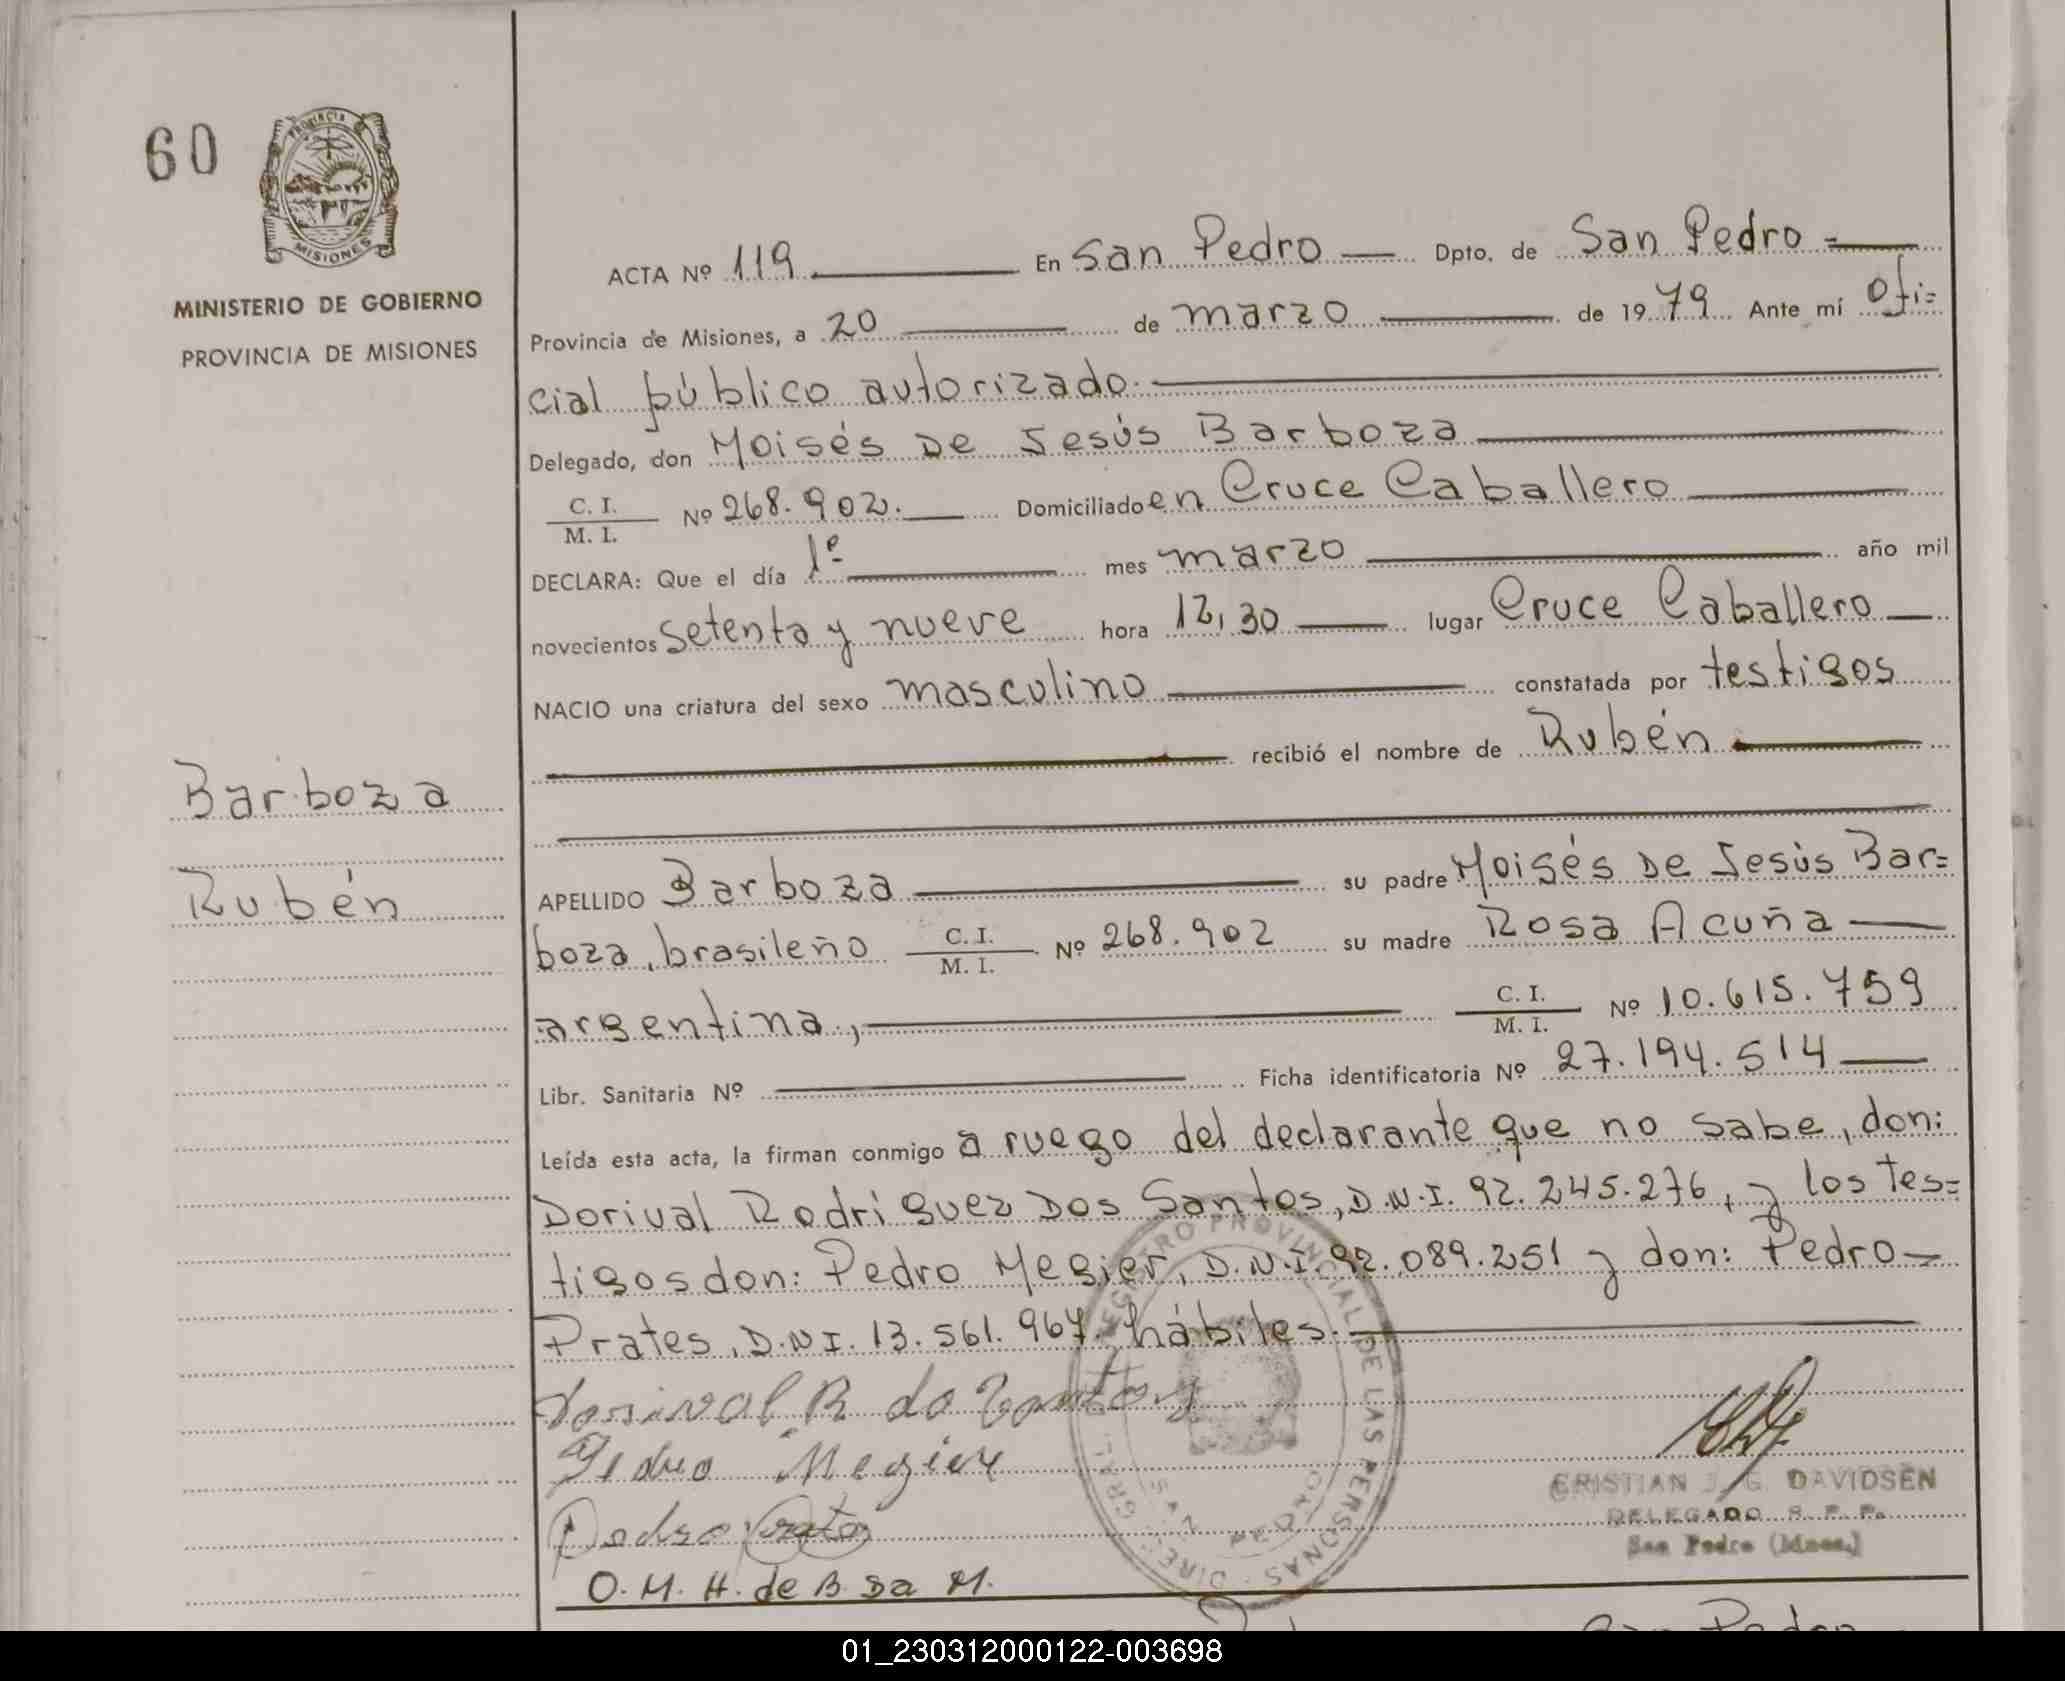 60
PROVINCIA
MISIONES
MINISTERIO DE GOBIERNO
PROVINCIA DE MISIONES
ACTA Nº 119 En San Pedro Dpto. de San Pedro
Provincia de Misiones, a 20 de marzo de 1979 Ante mí Ofi=
cial público autorizado.
Delegado, don Moisés De Jesús Barboza
C. I.
M. I. Nº 268.902. Domiciliado en Cruce Caballero
DECLARA: Que el día 1º mes marzo año mil
novecientos setenta y nueve hora 12,30 lugar Cruce Caballero
NACIO una criatura del sexo masculino constatada por testigos
recibió el nombre de Rubén
Barboza
Rubén
APELLIDO Barboza su padre Moisés De Jesús Bar=
boza, brasileño C. I.
M. I. Nº 268.902 su madre Rosa Acuña
argentina, C. I.
M. I. Nº 10.615.759
Libr. Sanitaria Nº Ficha identificatoria Nº 27.194.514
Leída esta acta, la firman conmigo a ruego del declarante que no sabe, don:
Dorival Rodriguez Dos Santos, D.N.I. 92.245.276, y los tes=
tigos don: Pedro Megier, D.N.I. 92.089.251 y don: Pedro
Prates, D.N.I. 13.561.967. hábiles.
Pedro Megier
CRISTIAN J. G. DAVIDSEN
DELEGADO R. P. P.
San Pedro (Mnes.)
O.M.H. de B. Da M.
REGISTRO PROVINCIAL DE LAS PERSONAS
SAN PEDRO
San Pedro
01_230312000122-003698